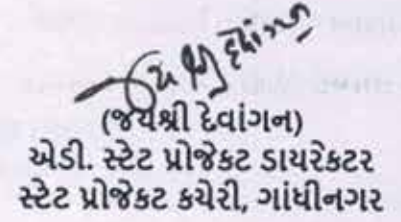 (જયશ્રી દેવાંગન)
એડી. સ્ટેટ પ્રોજેકટ ડાયરેકટર
સ્ટેટ પ્રોજેકટ કચેરી, ગાંધીનગર